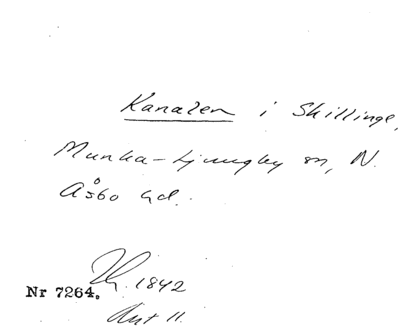 Kanalen i Skillinge,
Munka-Ljungby sn, N.
Åsbo hd.
1842
Nr 7264.
Akt 11.